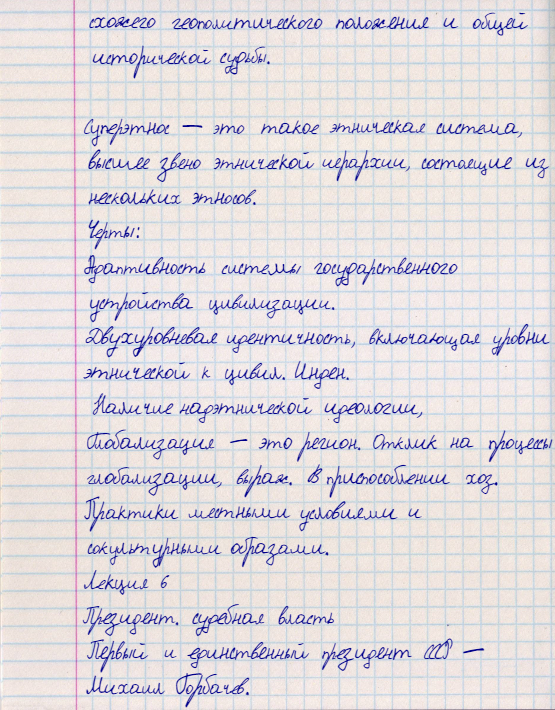 схожего геополитического положения и общей
исторической судьбы.
Суперэтнос — это такое этническая система,
высшее звено этнической иерархии, состоящие из
нескольких этносов.
Черты:
Адаптивность системы государственного
устройства цивилизации.
Двухуровневая идентичность, включающая уровни
этнической к цивил. Инден.
Наличие надэтнической идеологии,
Глобализация — это регион. Отклик на процессы
глобализации, выраж. В приспособлении хоз.
Практики местными условиями и
сокультурными образами.
Лекция 6
Президент. судебная власть
Первый и единственный президент СССР —
Михаил Горбачев.